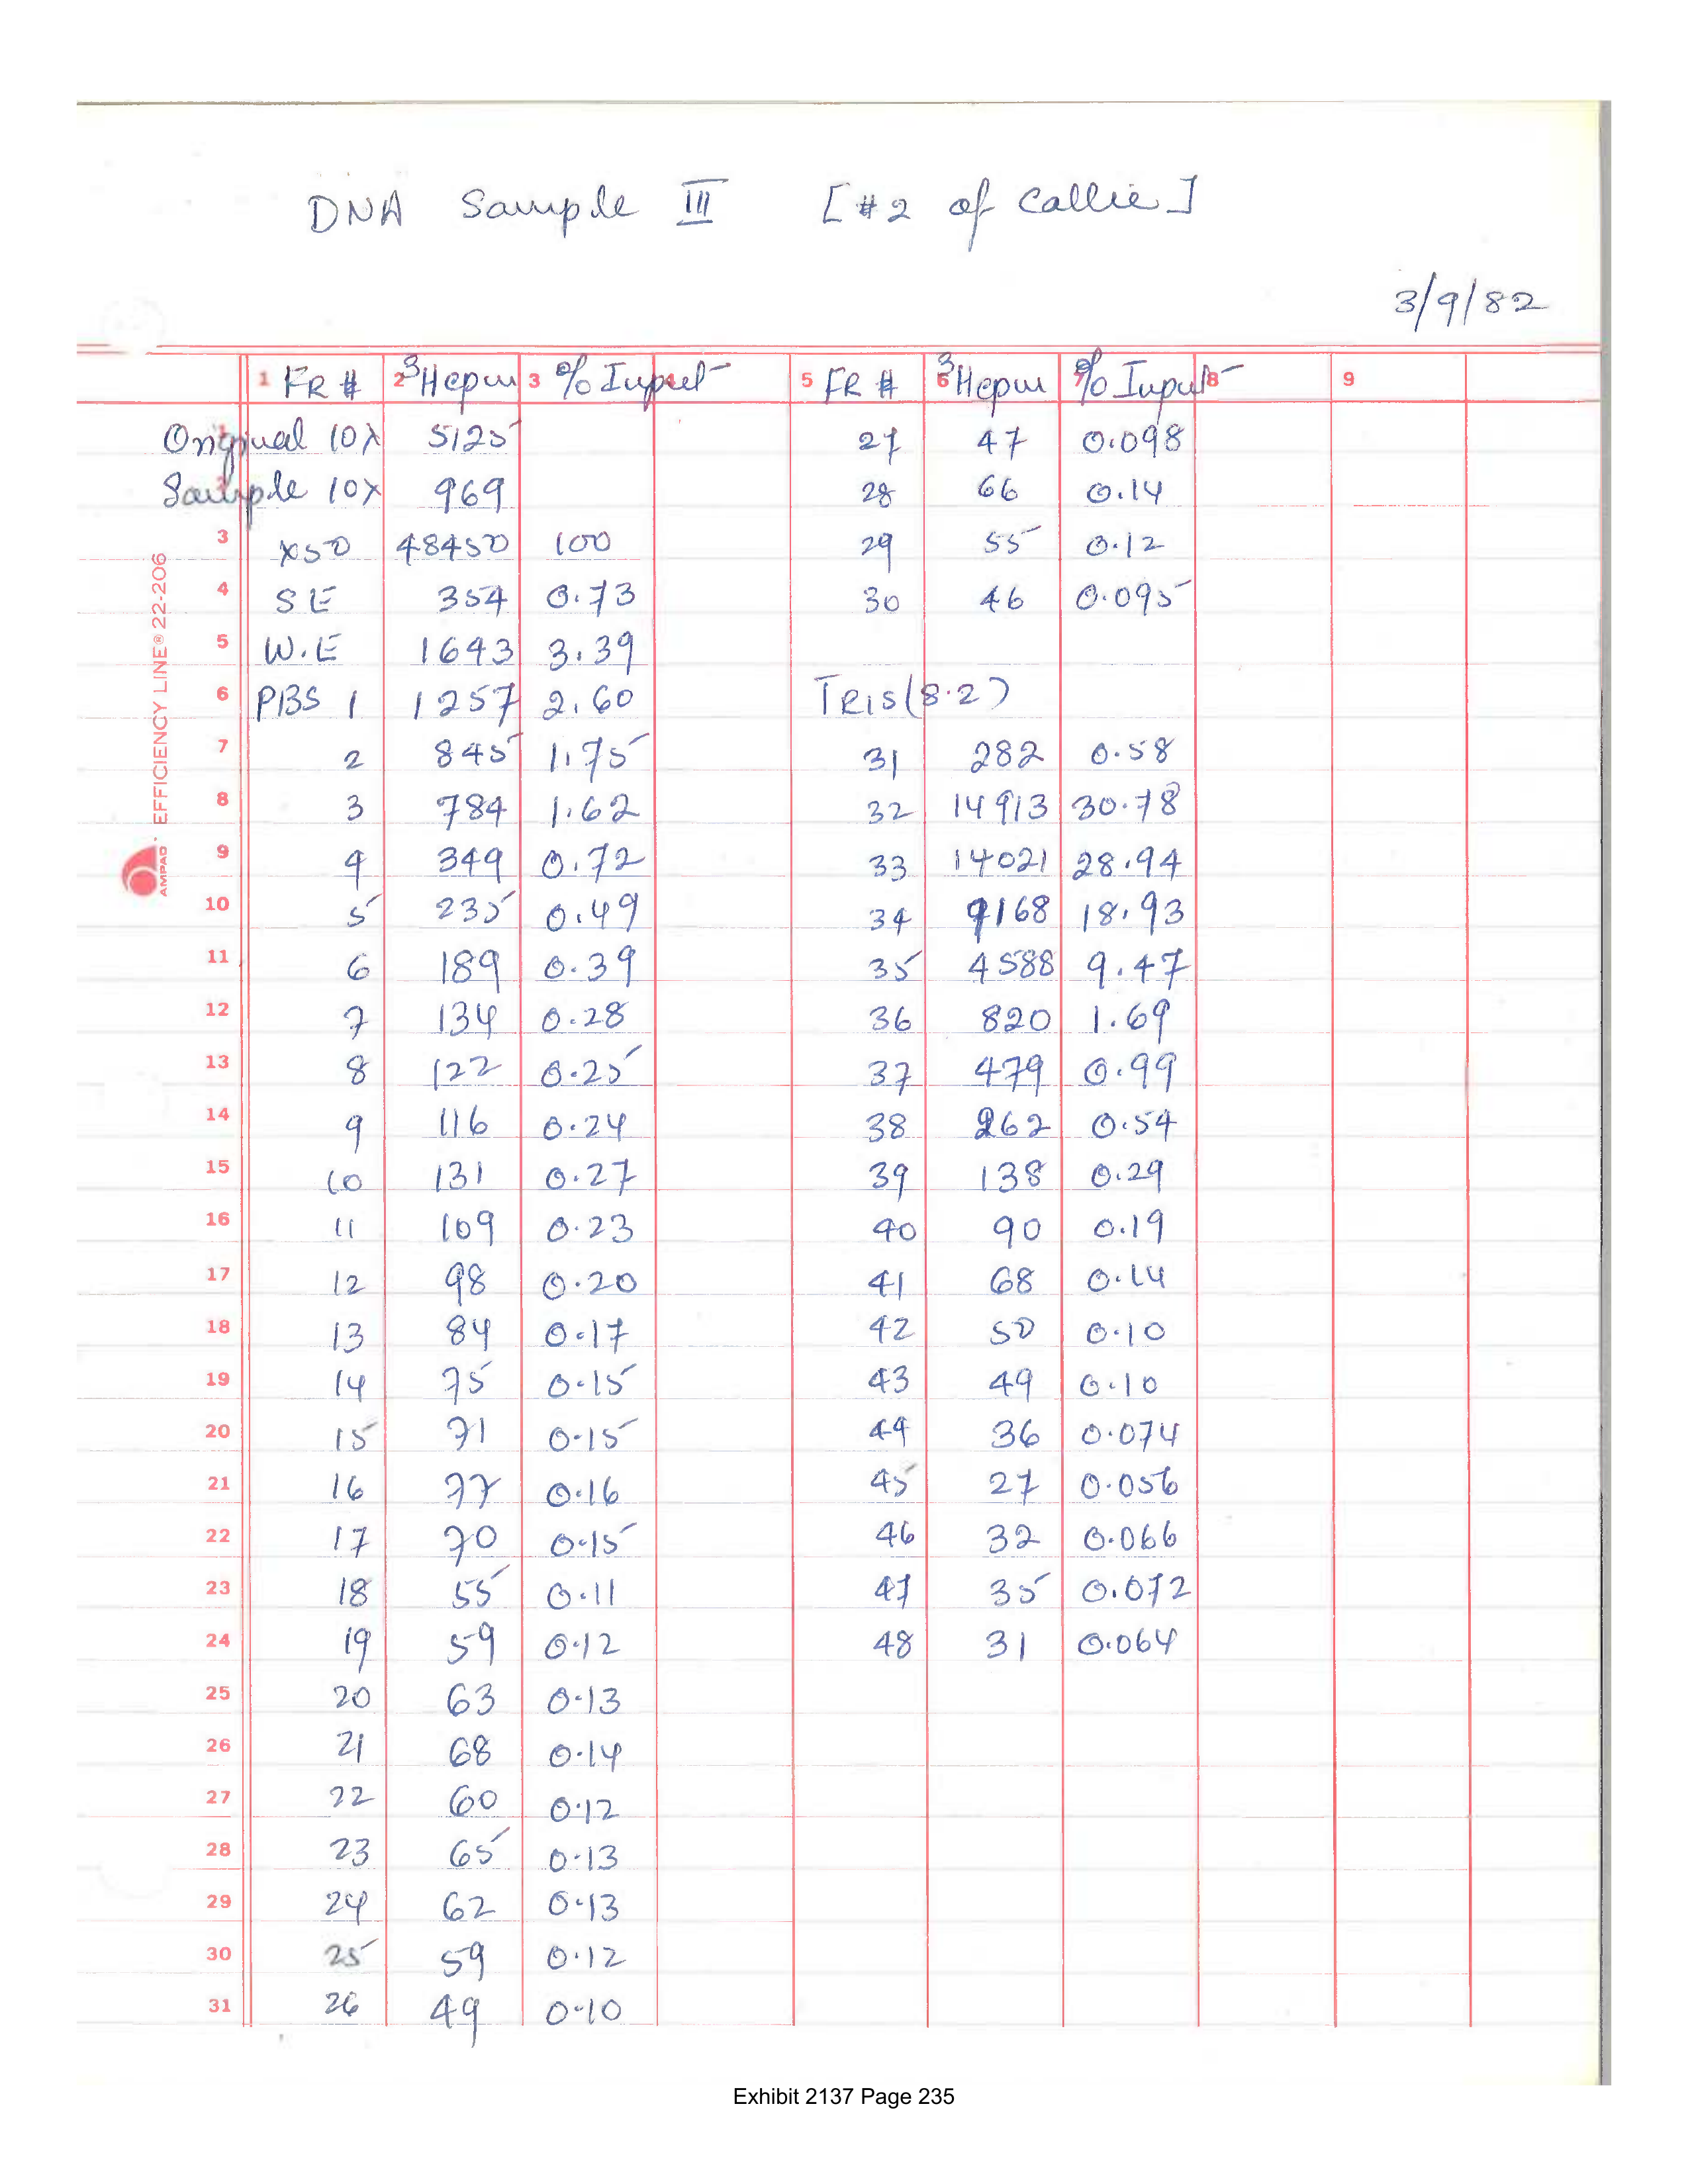 DNA Sample III [#2 of Callie]
3/9/82
1 FR # 2 3Hcpm 3 % Input 4 5 FR # 6 3Hcpm 7 % Input 8 9
Original 10λ 5125 27 47 0.098
Sample 10λ 969 28 66 0.14
3 x50 48450 100 29 55 0.12
4 SE 354 0.73 30 46 0.095
5 W.E 1643 3.39
6 PBS 1 1257 2.60 TRIS (8.2)
7 2 845 1.75 31 282 0.58
8 3 784 1.62 32 14913 30.78
9 4 349 0.72 33 14021 28.94
10 5 235 0.49 34 9168 18.93
11 6 189 0.39 35 4588 9.47
12 7 134 0.28 36 820 1.69
13 8 122 0.25 37 479 0.99
14 9 116 0.24 38 262 0.54
15 10 131 0.27 39 138 0.29
16 11 109 0.23 40 90 0.19
17 12 98 0.20 41 68 0.14
18 13 84 0.17 42 50 0.10
19 14 75 0.15 43 49 0.10
20 15 71 0.15 44 36 0.074
21 16 77 0.16 45 27 0.056
22 17 70 0.15 46 32 0.066
23 18 55 0.11 47 35 0.072
24 19 59 0.12 48 31 0.064
25 20 63 0.13
26 21 68 0.14
27 22 60 0.12
28 23 65 0.13
29 24 62 0.13
30 25 59 0.12
31 26 49 0.10
AMPAD · EFFICIENCY LINE® 22-206
Exhibit 2137 Page 235